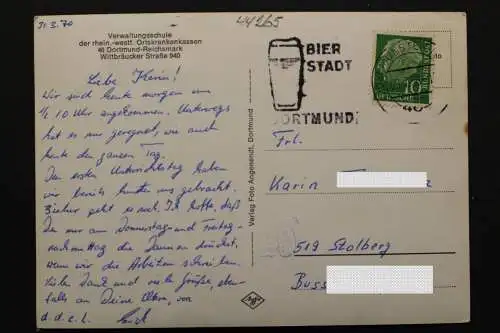 31.3.70
44265
Verwaltungsschule
der rhein.-westf. Ortskrankenkassen
46 Dortmund-Reichsmark
Wittbräucker Straße 940
Liebe Karin!
Wir sind heute morgen um
½ 10 Uhr angekommen. Unterwegs
hat es nur geregnet, wie auch
heute den ganzen Tag.
Den ersten Unterrichtstag haben
wir bereits hinter uns gebracht.
Bisher geht es noch. Ich hoffe, daß
Du mir am Donnerstag- und Freitag-
nachmittag die Daumen drückst,
wenn wir die Arbeiten schreiben.
Vielen Dank und viele Grüße, eben-
falls an Deine Eltern, von
d.d.e.l.
Verlag Foto Angenendt, Dortmund
BIER
STADT
DORTMUND
10
Frl.
Karin
519 Stolberg
Buss
Agfa